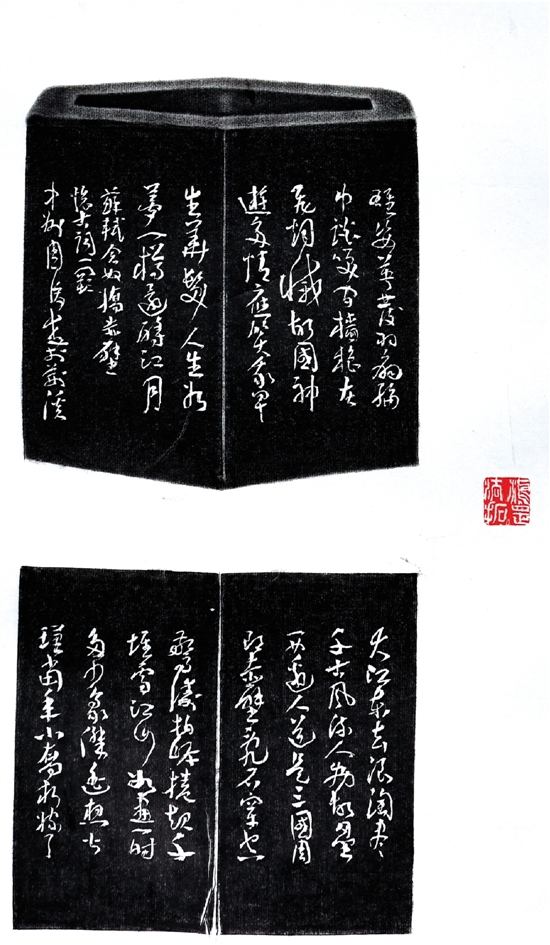 大江東去浪淘尽
千古風流人物故壘
西邊人道是三國周
郎赤壁乱石穿空
驚濤拍岸捲起千
堆雪江山如畫一時
多少豪傑遥想公
瑾當年小喬初嫁了
雄姿英發羽扇綸
巾談笑間檣櫓灰
飛烟滅故國神
遊多情應笑我早
生華髮人生如
夢一樽還酹江月
蘇軾念奴嬌赤壁
懷古詞一闋
於荆溪